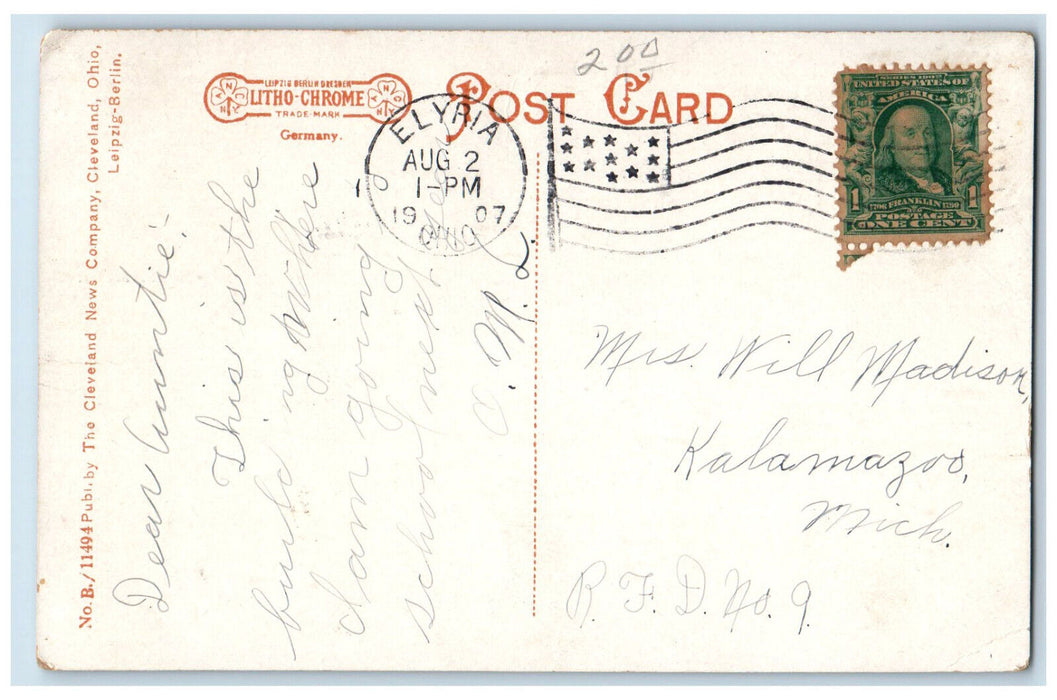 2 00
LEIPZIG BERLIN DRESDEN
LITHO-CHROME
TRADE-MARK
Germany.
POST CARD
ELYRIA
AUG 2
1-PM
1907
OHIO
SERIES 1902
UNITED STATES OF
AMERICA
1706 FRANKLIN 1790
1 POSTAGE 1
ONE CENT
No. B./11494 Publ. by The Cleveland News Company, Cleveland, Ohio,
Leipzig-Berlin.
Dear Auntie:
This is the
building where
I am going
school next
year
M. L.
Mrs. Will Madison,
Kalamazoo,
Mich.
R. F. D. No. 9.